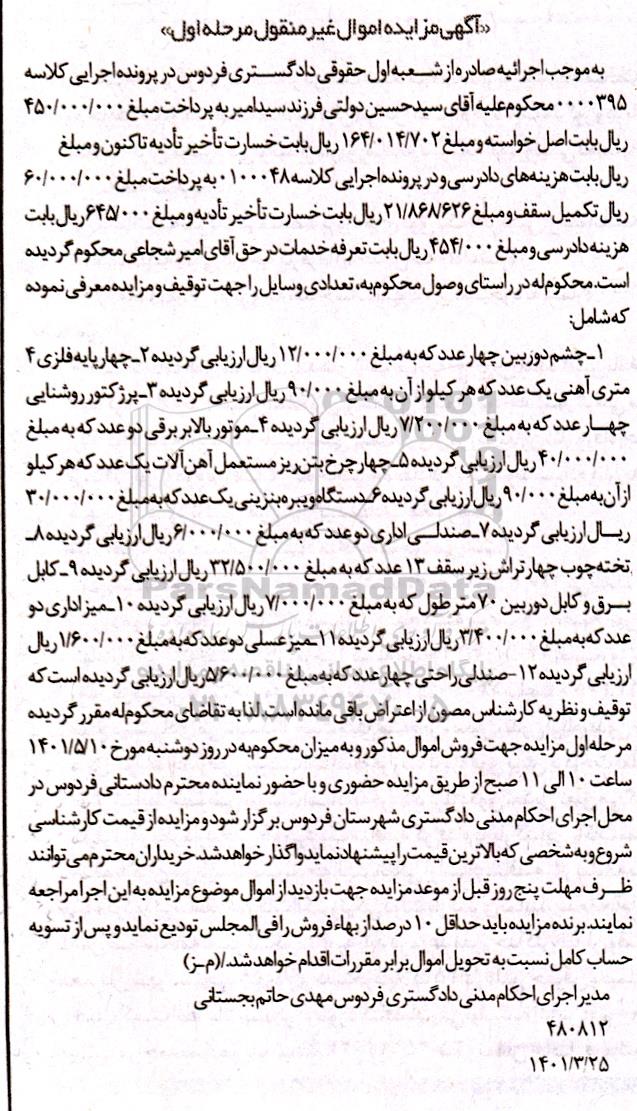 «آگهی مزایده اموال غیر منقول مرحله اول»
به موجب اجرائیه صادره از شعبه اول حقوقی دادگستری فردوس در پرونده اجرایی کلاسه
۰۰۰۰۳۹۵ محکوم علیه آقای سید حسین دولتی فرزند سید امیر به پرداخت مبلغ ۴۵۰/۰۰۰/۰۰۰
ریال بابت اصل خواسته و مبلغ ۱۶۴/۰۱۴/۷۰۲ ریال بابت خسارت تأخیر تأدیه تاکنون و مبلغ
ریال بابت هزینه‌های دادرسی و در پرونده اجرایی کلاسه ۰۱۰۰۰۴۸ به پرداخت مبلغ ۶۰/۰۰۰/۰۰۰
ریال تکمیل سقف و مبلغ ۲۱/۸۶۸/۶۲۶ ریال بابت خسارت تأخیر تأدیه و مبلغ ۶۴۵/۰۰۰ ریال بابت
هزینه دادرسی و مبلغ ۴۵۴/۰۰۰ ریال بابت تعرفه خدمات در حق آقای امیر شجاعی محکوم گردیده
است. محکوم‌له در راستای وصول محکوم‌به، تعدادی وسایل را جهت توقیف و مزایده معرفی نموده
که شامل:
۱ـ چشم دوربین چهار عدد که به مبلغ ۱۲/۰۰۰/۰۰۰ ریال ارزیابی گردیده ۲ـ چهارپایه فلزی ۴
متری آهنی یک عدد که هر کیلو از آن به مبلغ ۹۰/۰۰۰ ریال ارزیابی گردیده ۳ـ پرژکتور روشنایی
چهار عدد که به مبلغ ۷/۲۰۰/۰۰۰ ریال ارزیابی گردیده ۴ـ موتور بالابر برقی دو عدد که به مبلغ
۴۰/۰۰۰/۰۰۰ ریال ارزیابی گردیده ۵ـ چهارچرخ بتن ریز مستعمل آهن آلات یک عدد که هر کیلو
از آن به مبلغ ۹۰/۰۰۰ ریال ارزیابی گردیده ۶ـ دستگاه ویبره بنزینی یک عدد که به مبلغ ۳۰/۰۰۰/۰۰۰
ریال ارزیابی گردیده ۷ـ صندلی اداری دو عدد که به مبلغ ۶/۰۰۰/۰۰۰ ریال ارزیابی گردیده ۸ـ
تخته چوب چهارتراش زیر سقف ۱۳ عدد که به مبلغ ۳۲/۵۰۰/۰۰۰ ریال ارزیابی گردیده ۹ـ کابل
برق و کابل دوربین ۷۰ متر طول که به مبلغ ۷/۰۰۰/۰۰۰ ریال ارزیابی گردیده ۱۰ـ میز اداری دو
عدد که به مبلغ ۲/۴۰۰/۰۰۰ ریال ارزیابی گردیده ۱۱ـ میز عسلی دو عدد که به مبلغ ۱/۶۰۰/۰۰۰ ریال
ارزیابی گردیده ۱۲- صندلی راحتی چهار عدد که به مبلغ ۵/۶۰۰/۰۰۰ ریال ارزیابی گردیده است که
توقیف و نظریه کارشناس مصون از اعتراض باقی مانده است. لذا به تقاضای محکوم‌له مقرر گردیده
مرحله اول مزایده جهت فروش اموال مذکور و به میزان محکوم‌به در روز دوشنبه مورخ ۱۴۰۱/۵/۱۰
ساعت ۱۰ الی ۱۱ صبح از طریق مزایده حضوری و با حضور نماینده محترم دادستانی فردوس در
محل اجرای احکام مدنی دادگستری شهرستان فردوس برگزار شود و مزایده از قیمت کارشناسی
شروع و به شخصی که بالاترین قیمت را پیشنهاد نماید واگذار خواهد شد. خریداران محترم می‌توانند
ظرف مهلت پنج روز قبل از موعد مزایده جهت بازدید از اموال موضوع مزایده به این اجرا مراجعه
نمایند. برنده مزایده باید حداقل ۱۰ درصد از بهاء فروش را فی المجلس تودیع نماید و پس از تسویه
حساب کامل نسبت به تحویل اموال برابر مقررات اقدام خواهد شد. /(م-ز)
مدیر اجرای احکام مدنی دادگستری فردوس مهدی حاتم بجستانی
۴۸۰۸۱۲
۱۴۰۱/۳/۲۵
ParsNamadData